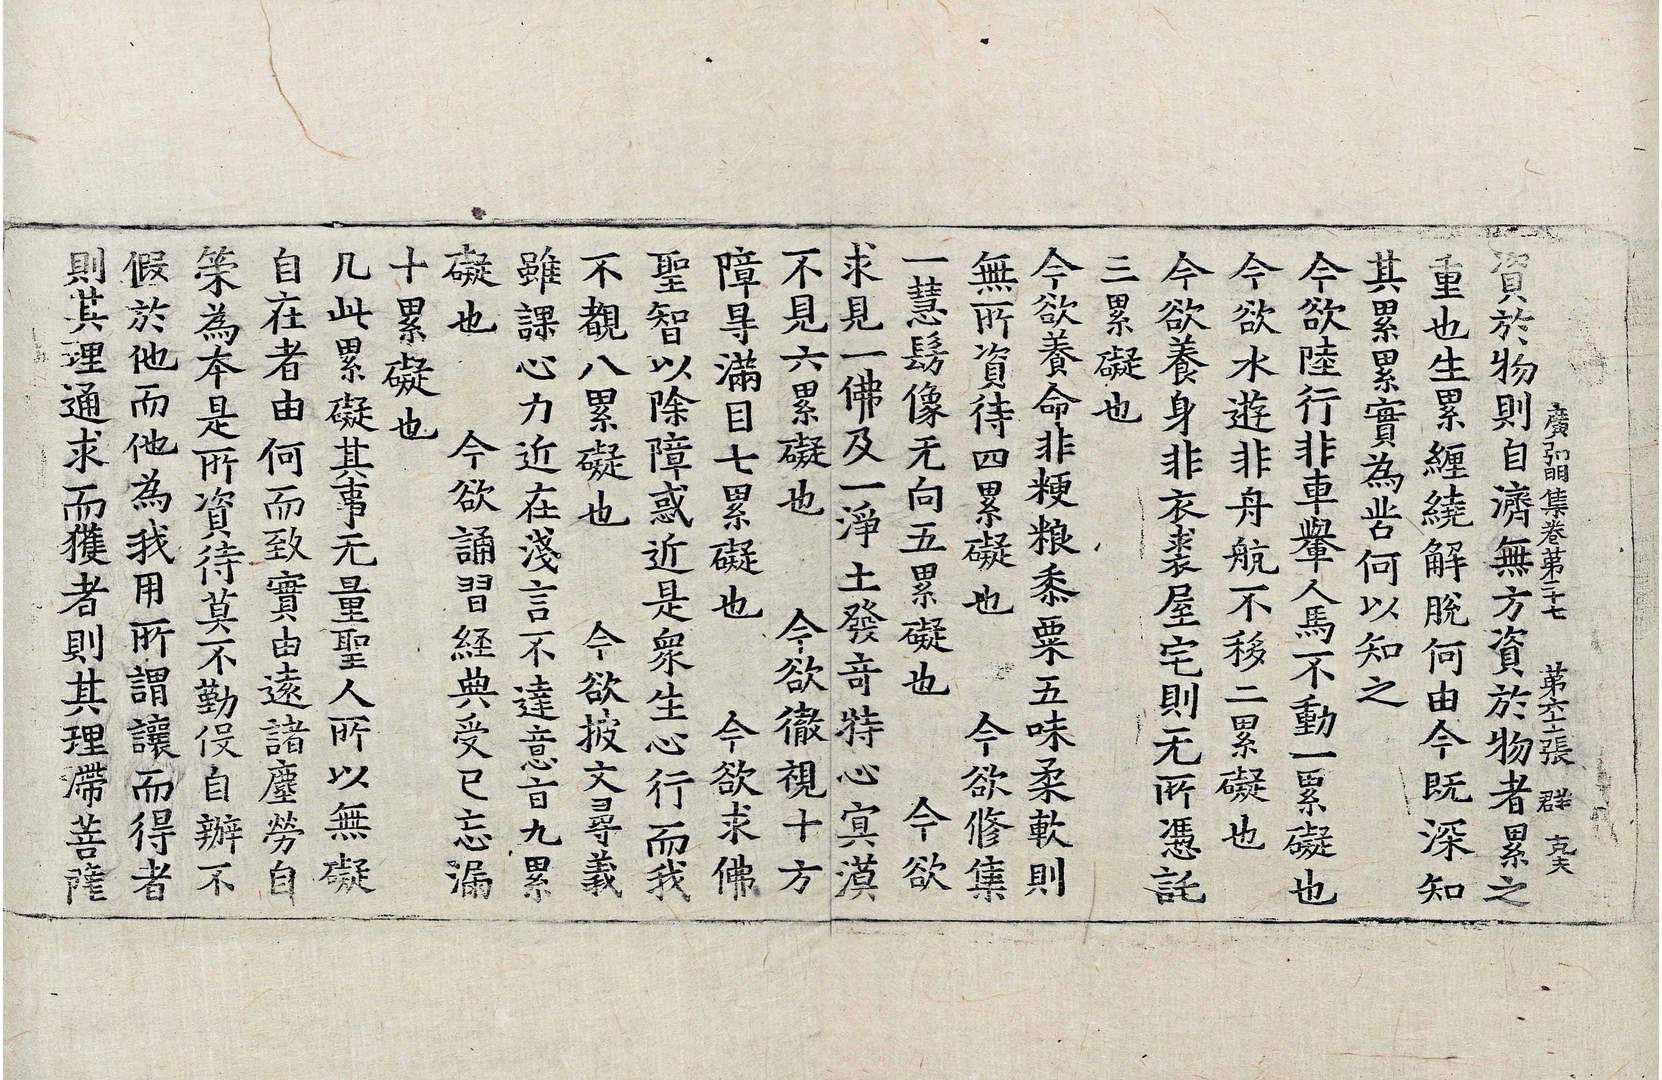 資於物則自濟無方資於物者累之
廣弘明集卷苐二十七 苐六十二張 群 克夫
重也生累纏繞解脫何由今既深知
其累累實為咎何以知之
今欲陸行非車轝人馬不動一累礙也
今欲水遊非舟航不移二累礙也
今欲養身非衣裘屋宅則无所憑託
三累礙也
今欲養命非粳粮黍粟五味柔軟則
無所資待四累礙也 今欲修集
一慧髣像无向五累礙也 今欲
求見一佛及一淨土發竒特心㝠漠
不見六累礙也 今欲徹視十方
障㝵滿目七累礙也 今欲求佛
聖智以除障惑近是衆生心行而我
不覩八累礙也 今欲披文尋義
雖課心力近在淺言不達意旨九累
礙也 今欲誦習經典受已忘漏
十累礙也
凡此累礙其事无量聖人所以無礙
自在者由何而致實由遠諸塵勞自
策為本是所資待莫不勤伇自辦不
假於他而他為我用所謂讓而得者
則其理通求而獲者則其理滯菩薩